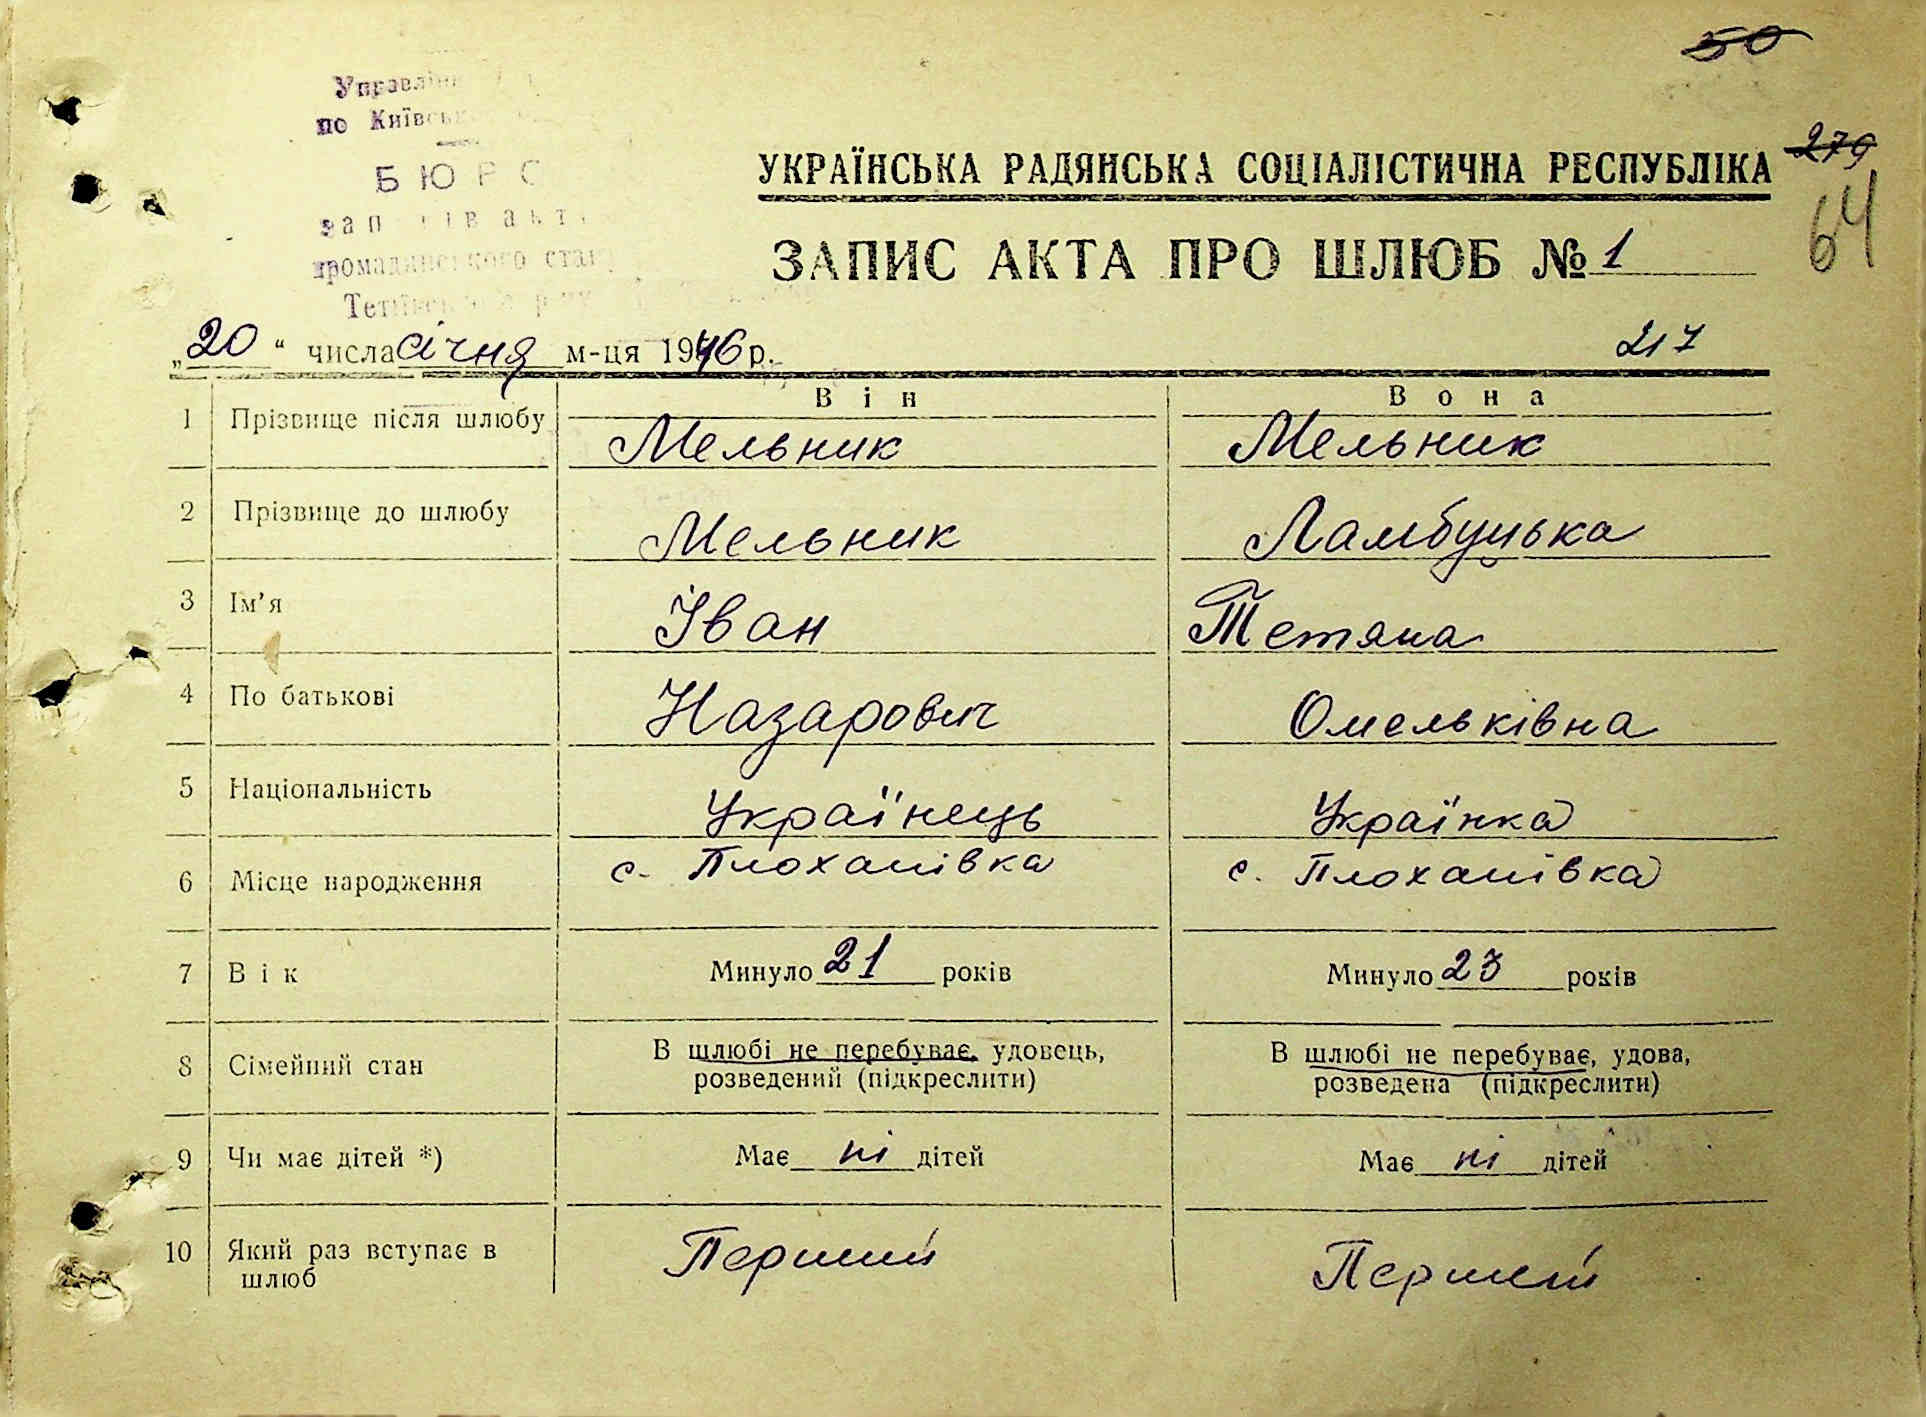 50
по
БЮРО
УКРАЇНСЬКА РАДЯНСЬКА СОЦІАЛІСТИЧНА РЕСПУБЛІКА 279
ЗАПИС АКТА ПРО ШЛЮБ № 1 64
„20“ числа січня м-ця 1946 р. 217
Він Вона
1 Прізвище після шлюбу Мельник Мельник
2 Прізвище до шлюбу Мельник Ламбуцька
3 Ім’я Іван Тетяна
4 По батькові Назарович Омельківна
5 Національність Українець Українка
6 Місце народження с. Плоханівка с. Плоханівка
7 Вік Минуло 21 років Минуло 23 років
8 Сімейний стан В шлюбі не перебуває, удовець, В шлюбі не перебуває, удова,
розведений (підкреслити) розведена (підкреслити)
9 Чи має дітей *) Має ні дітей Має ні дітей
10 Який раз вступає в Перший Перший
шлюб